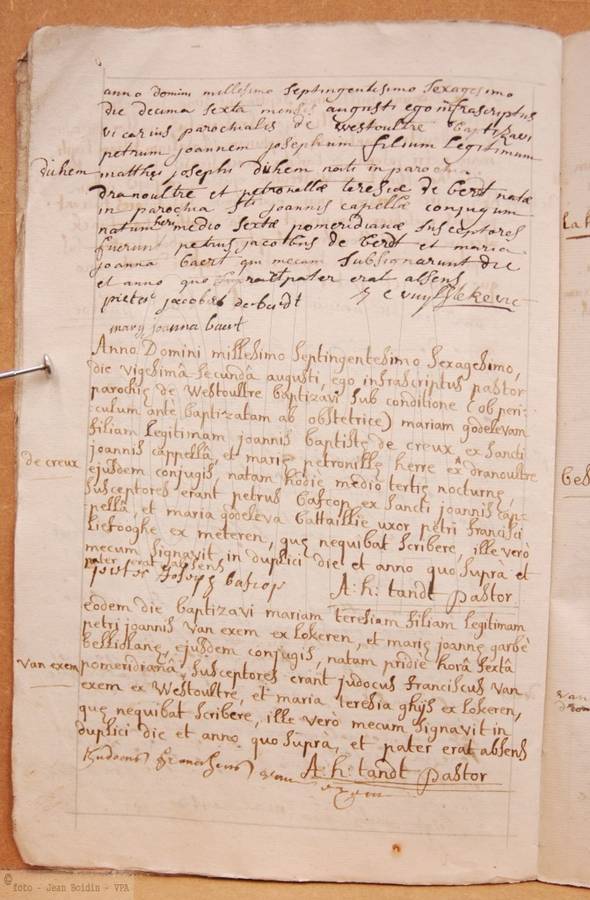 anno domini millesimo septingentesimo sexagesimo
die decima sexta mensis augusti ego infrascriptus
vicarius parochialis de westoultre baptizavi
petrum joannem josephum filium legitimum
dichem matthei josephi dichem nati in parochia
dranoultre et petronallæ teresiæ de berdt natæ
in parochia Sti joannis capellæ conjugum
natum medio sextæ pomeridianæ susceptores
fuerunt petrus jacobus de berdt et maria
joanna baert qui mecum subsignarunt die
et anno quo pater erat absens
pieter jacobus de berdt
mary joanna baert
Anno Domini millesimo septingentesimo sexagesimo,
die vigesimâ secundâ augusti, ego infrascriptus pastor
parochię de Westoultre baptizavi sub conditione (ob peri-
culum antè baptizatam ab obstetrice) mariam godelevam
filiam legitimam joannis baptistę de creux ex sancti
de creux joannis cappellâ, et marię petronillę herre ex dranoultre
ejusdem conjugis, natam hodiè medio tertię nocturnę,
susceptores erant petrus bascop ex sancti joannis cap-
pellâ, et maria godeleva battaillie uxor petri francisci
liefooghe ex meteren, quę nequibat scribere, ille verò
mecum signavit in duplici die et anno quo suprà et
pater erat absens
peeter joseph bascop A: h: tandt pastor
eodem die baptizavi mariam teresiam filiam legitimam
petri joannis van exem ex lokeren, et marię joannę garbè
bellislanę, ejusdem conjugis, natam pridię horâ sextâ
van exem pomeridianâ, susceptores erant judocus franciscus van
exem ex westoultre, et maria teresia ghijs ex lokeren,
quę nequibat scribere, ille verò mecum signavit in
duplici die et anno quo suprà, et pater erat absens
A: h: tandt pastor
© foto - Jean Boidin - VPA